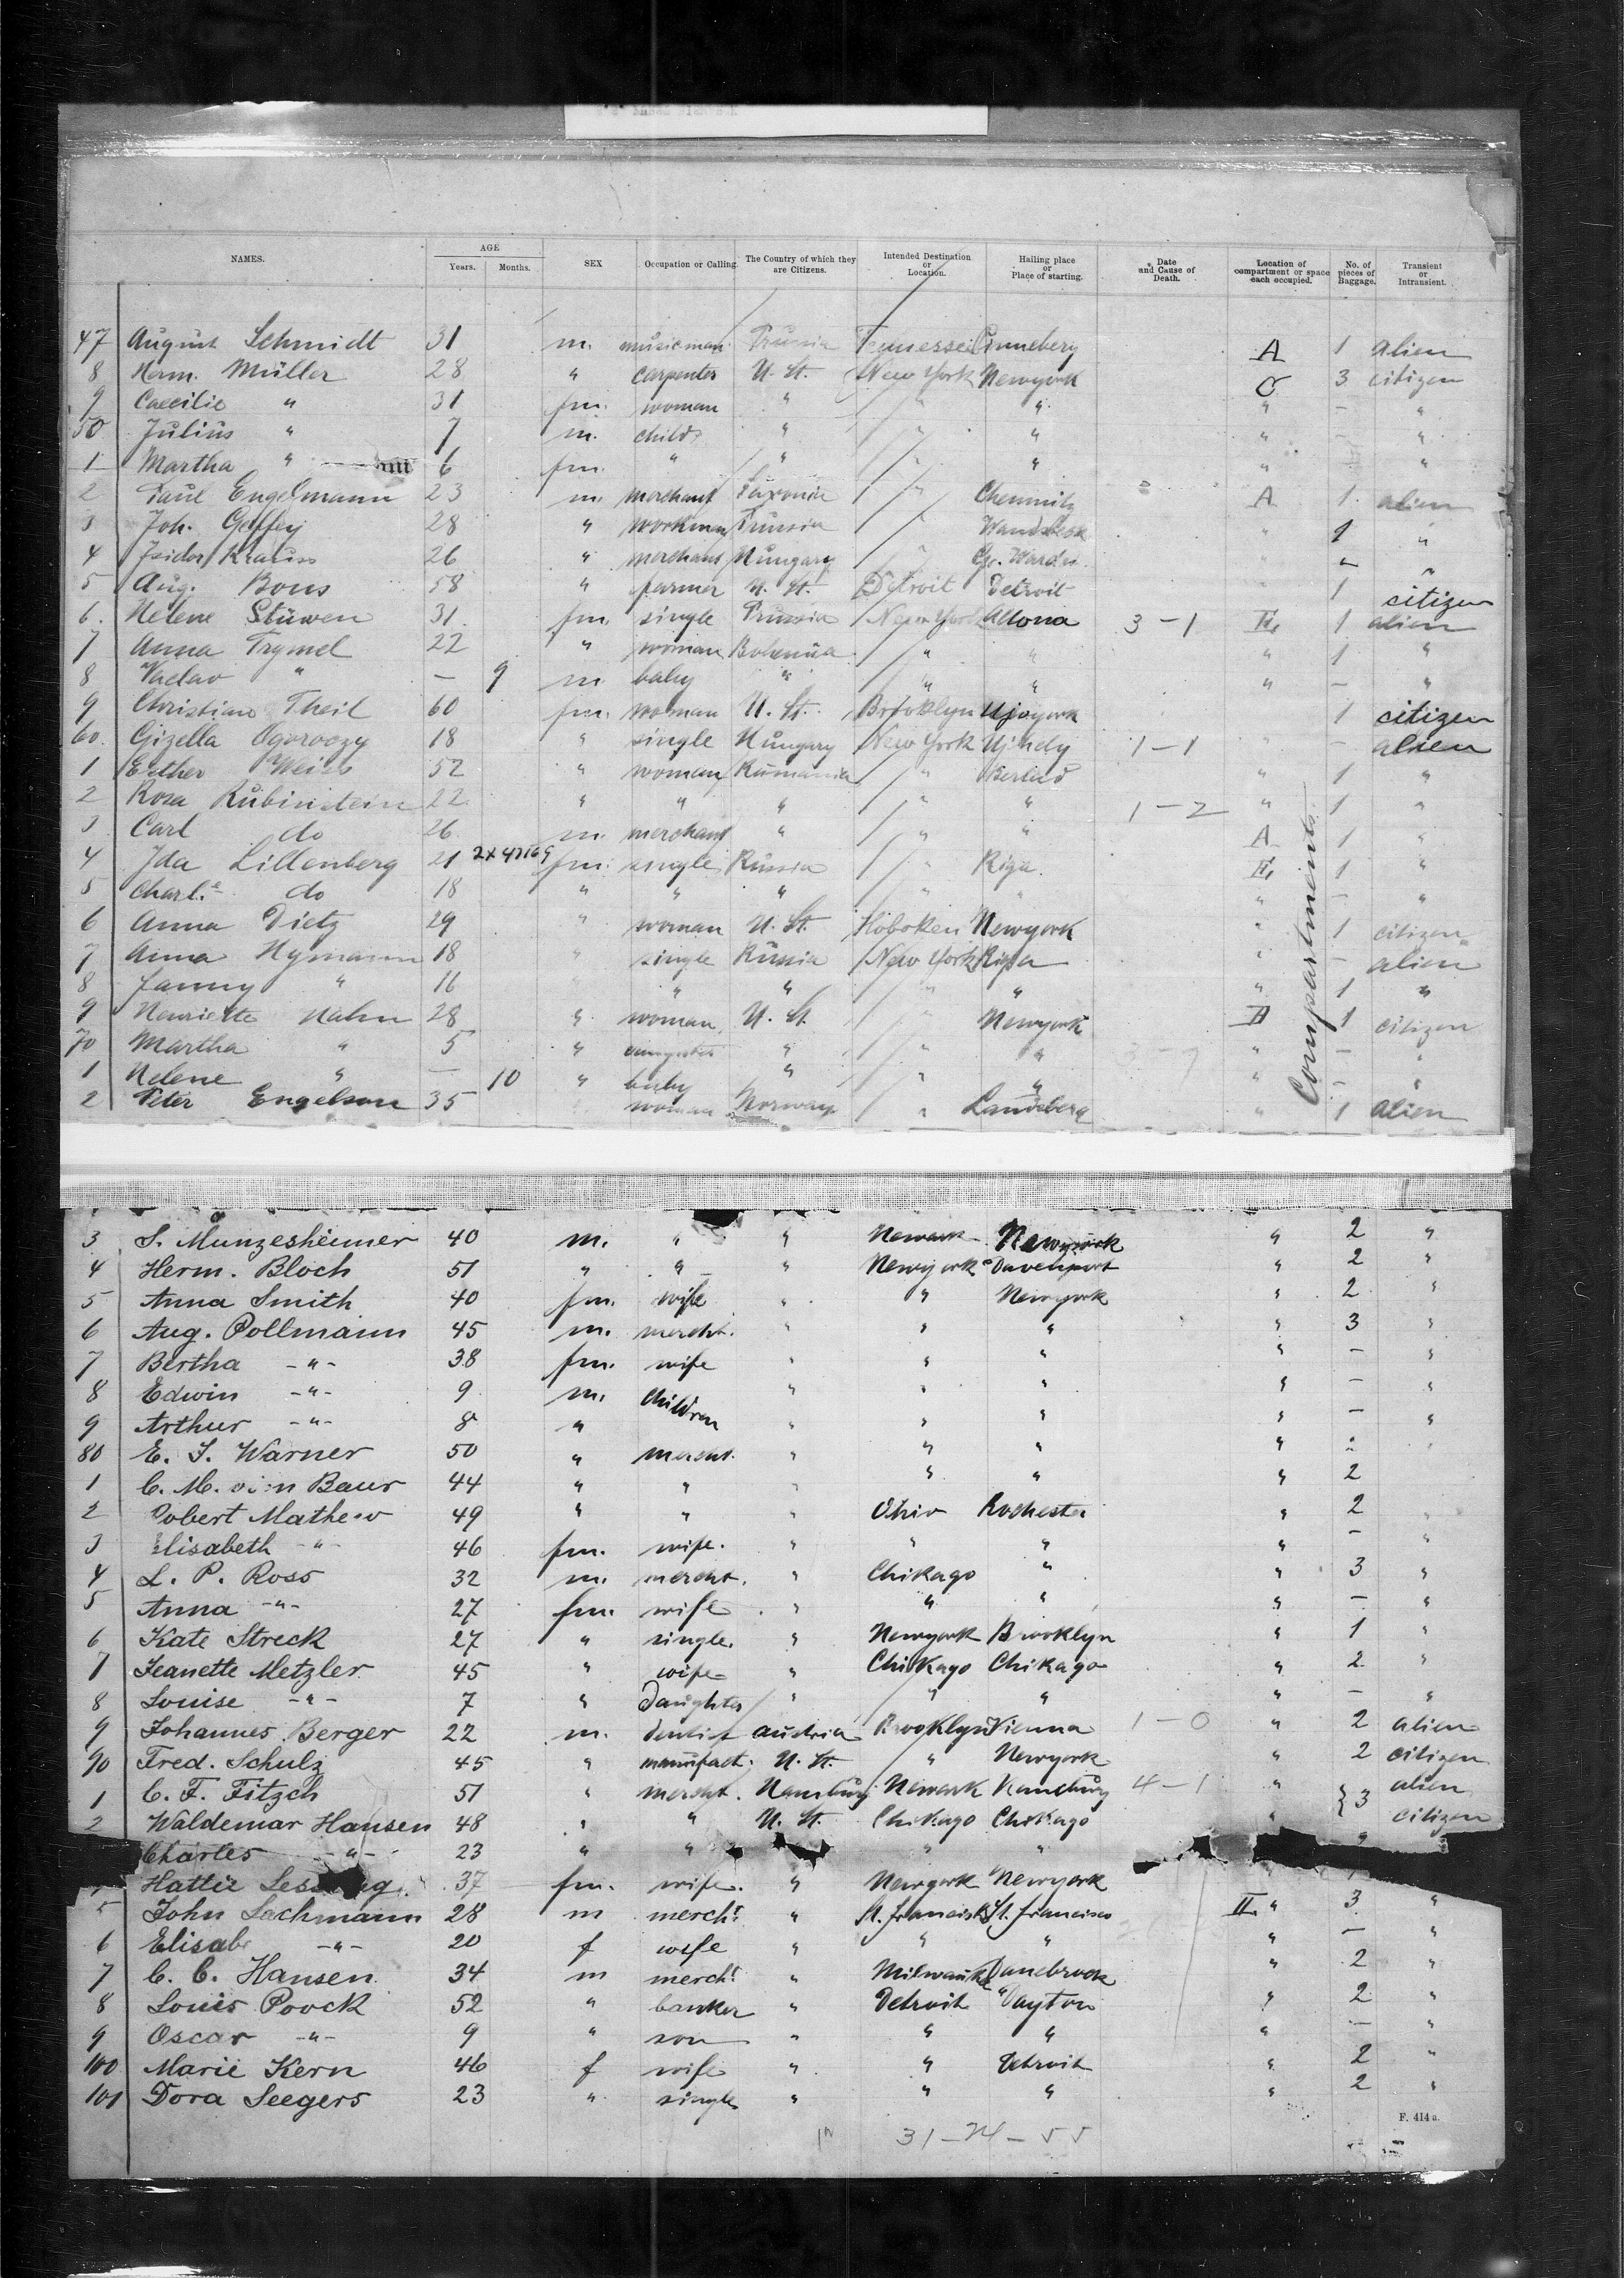 NAMES. AGE Years. Months. SEX Occupation or Calling. The Country of which they are Citizens. Intended Destination or Location. Hailing place or Place of starting. Date and Cause of Death. Location of compartment or space each occupied. No. of pieces of Baggage. Transient or Intransient.
47 August Schmidt 31 m. musicman Prussia Tennessee Pinneberg A 1 alien
8 Herm. Müller 28 " carpenter U. St. New York Newyork C 3 citizen
9 Caecilie " 31 fm. woman " " " " – "
50 Julius " 7 m. child " " " " – "
1 Martha " 6 fm. " " " " " – "
2 Paul Engelmann 23 m. merchant Saxonia " Chemnitz A 1 alien
3 Joh. Geffey 28 " workman Prussia " Wandsbeck " 1 "
4 Isidor Krauss 26 " merchant Hungary " Gr. Wardein " – "
5 Aug. Bous 58 " farmer U. St. Detroit Detroit 1 citizen
6. Helene Stüwen 31. fm. single Prussia New York Altona 3 – 1 II, 1 alien
7 Anna Trymel 22 " woman Bohemia " " " 1 "
8 Vaclav " – 9 m baby " " " " – "
9 Christine Theil 60 fm. woman U. St. Brooklyn 1 citizen
60. Gizella Ogoroczy 18 " single Hungary New York Ujhely 1 – 1 " – alien
1 Esther Weiss 52 " woman Rumania " Berlad " 1 "
2 Rosa Rubinstein 22. " " " " " 1 – 2 " 1 "
3 Carl do 26. m. merchant " " " A 1 "
4 Ida Lillenberg 21 2x47169 fm. single Russia " Riga. II, 1 "
5 Charl.e do 18 " " " " " " – "
6 Anna Dietz 29 " woman U. St. Hoboken Newyork " 1 citizen
7 Anna Hymann 18 " single Russia New York Riga " – alien
8 Fanny " 16 " " " " " 1 "
9 Henriette Hahn 28 " woman U. St. " Newyork II 1 citizen
70 Martha " 5 " " " " " – "
1 Helene " – 10 " baby " " " " – "
2 Peter Engelson 35 woman Norway " Landsberg " 1 alien
Compartments
3 S. Munzesheimer 40 m. " " Newark Newyork " 2 "
4 Herm. Bloch 51 " " " Newyork Davenport " 2 "
5 Anna Smith 40 fm. wife " " Newyork " 2 "
6 Aug. Pollmann 45 m. mercht. " " " " 3 "
7 Bertha – " – 38 fm. wife " " " " – "
8 Edwin – " – 9 m. children " " " " – "
9 Arthur – " – 8 " " " " " – "
80 E. S. Warner 50 " mercht. " " " " "
1 C. M. Baur 44 " " " " " " 2
2 Robert Mathew 49 " " " Ohio Rochester " 2 "
3 Elisabeth – " – 46 fm. wife. " " " " – "
4 L. P. Ross 32 m. mercht. " Chikago " " 3 "
5 Anna – " – 27 fm. wife " " " " – "
6 Kate Streck 27 " single. " Newyork Brooklyn " 1 "
7 Jeanette Metzler 45 " wife " Chikago Chikago " 2 "
8 Louise – " – 7 " Daughter " " " " – "
9 Johannes Berger 22 m. dentist Austria Brooklyn Vienna 1 – 0 " 2 alien
90 Fred. Schulz 45 " manufact. U. St. " Newyork " 2 citizen
1 C. F. Fitzch 51 " mercht. Hamburg Newark Hamburg 4 – 1 " } 3 alien
2 Waldemar Hansen 48 " " U. St. Chikago Chikago " citizen
Charles – " – 23 " " " "
Hattie 37 fm. wife. " Newyork Newyork
5 John Lachmann 28 m mercht. " St. Francisko St. Francisco II. " 3 "
6 Elisabe – " – 20 f wife " " " " – "
7 C. C. Hansen 34 m mercht. " Milwaukee Danebrock " 2 "
8 Louis Poock 52 " banker " Detroit Dayton " 2 "
9 Oscar – " – 9 " son " " " " – "
100 Marie Kern 46 f wife " " Detroit " 2 "
101 Dora Seegers 23 " single " " " " 2 "
F. 414 a.
31 – 24 – 55